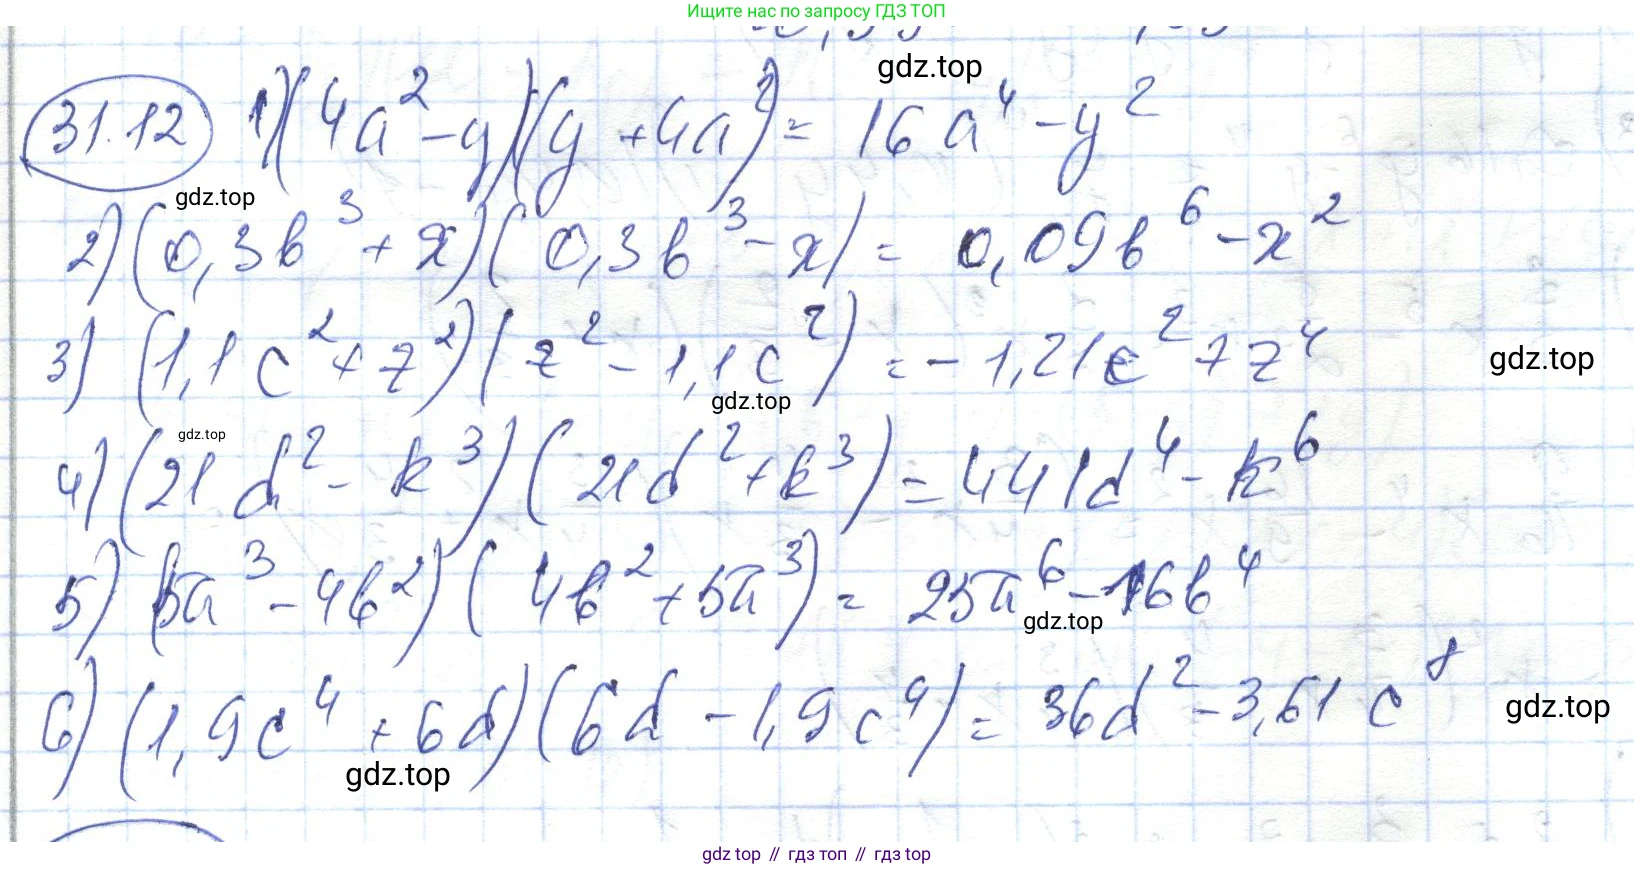 Ищите нас по запросу ГДЗ ТОП
gdz.top
31.12 1) (4a² - y)(y + 4a²) = 16a⁴ - y²
gdz.top
2) (0,3b³ + x)(0,3b³ - x) = 0,09b⁶ - x²
3) (1,1c² + z²)(z² - 1,1c²) = - 1,21c² + z⁴
gdz.top
gdz.top
gdz.top
4) (21d² - k³)(21d² + k³) = 441d⁴ - k⁶
5) (5a³ - 4b²)(4b² + 5a³) = 25a⁶ - 16b⁴
gdz.top
6) (1,9c⁴ + 6d)(6d - 1,9c⁴) = 36d² - 3,61c⁸
gdz.top
gdz.top
gdz top // гдз топ // гдз top